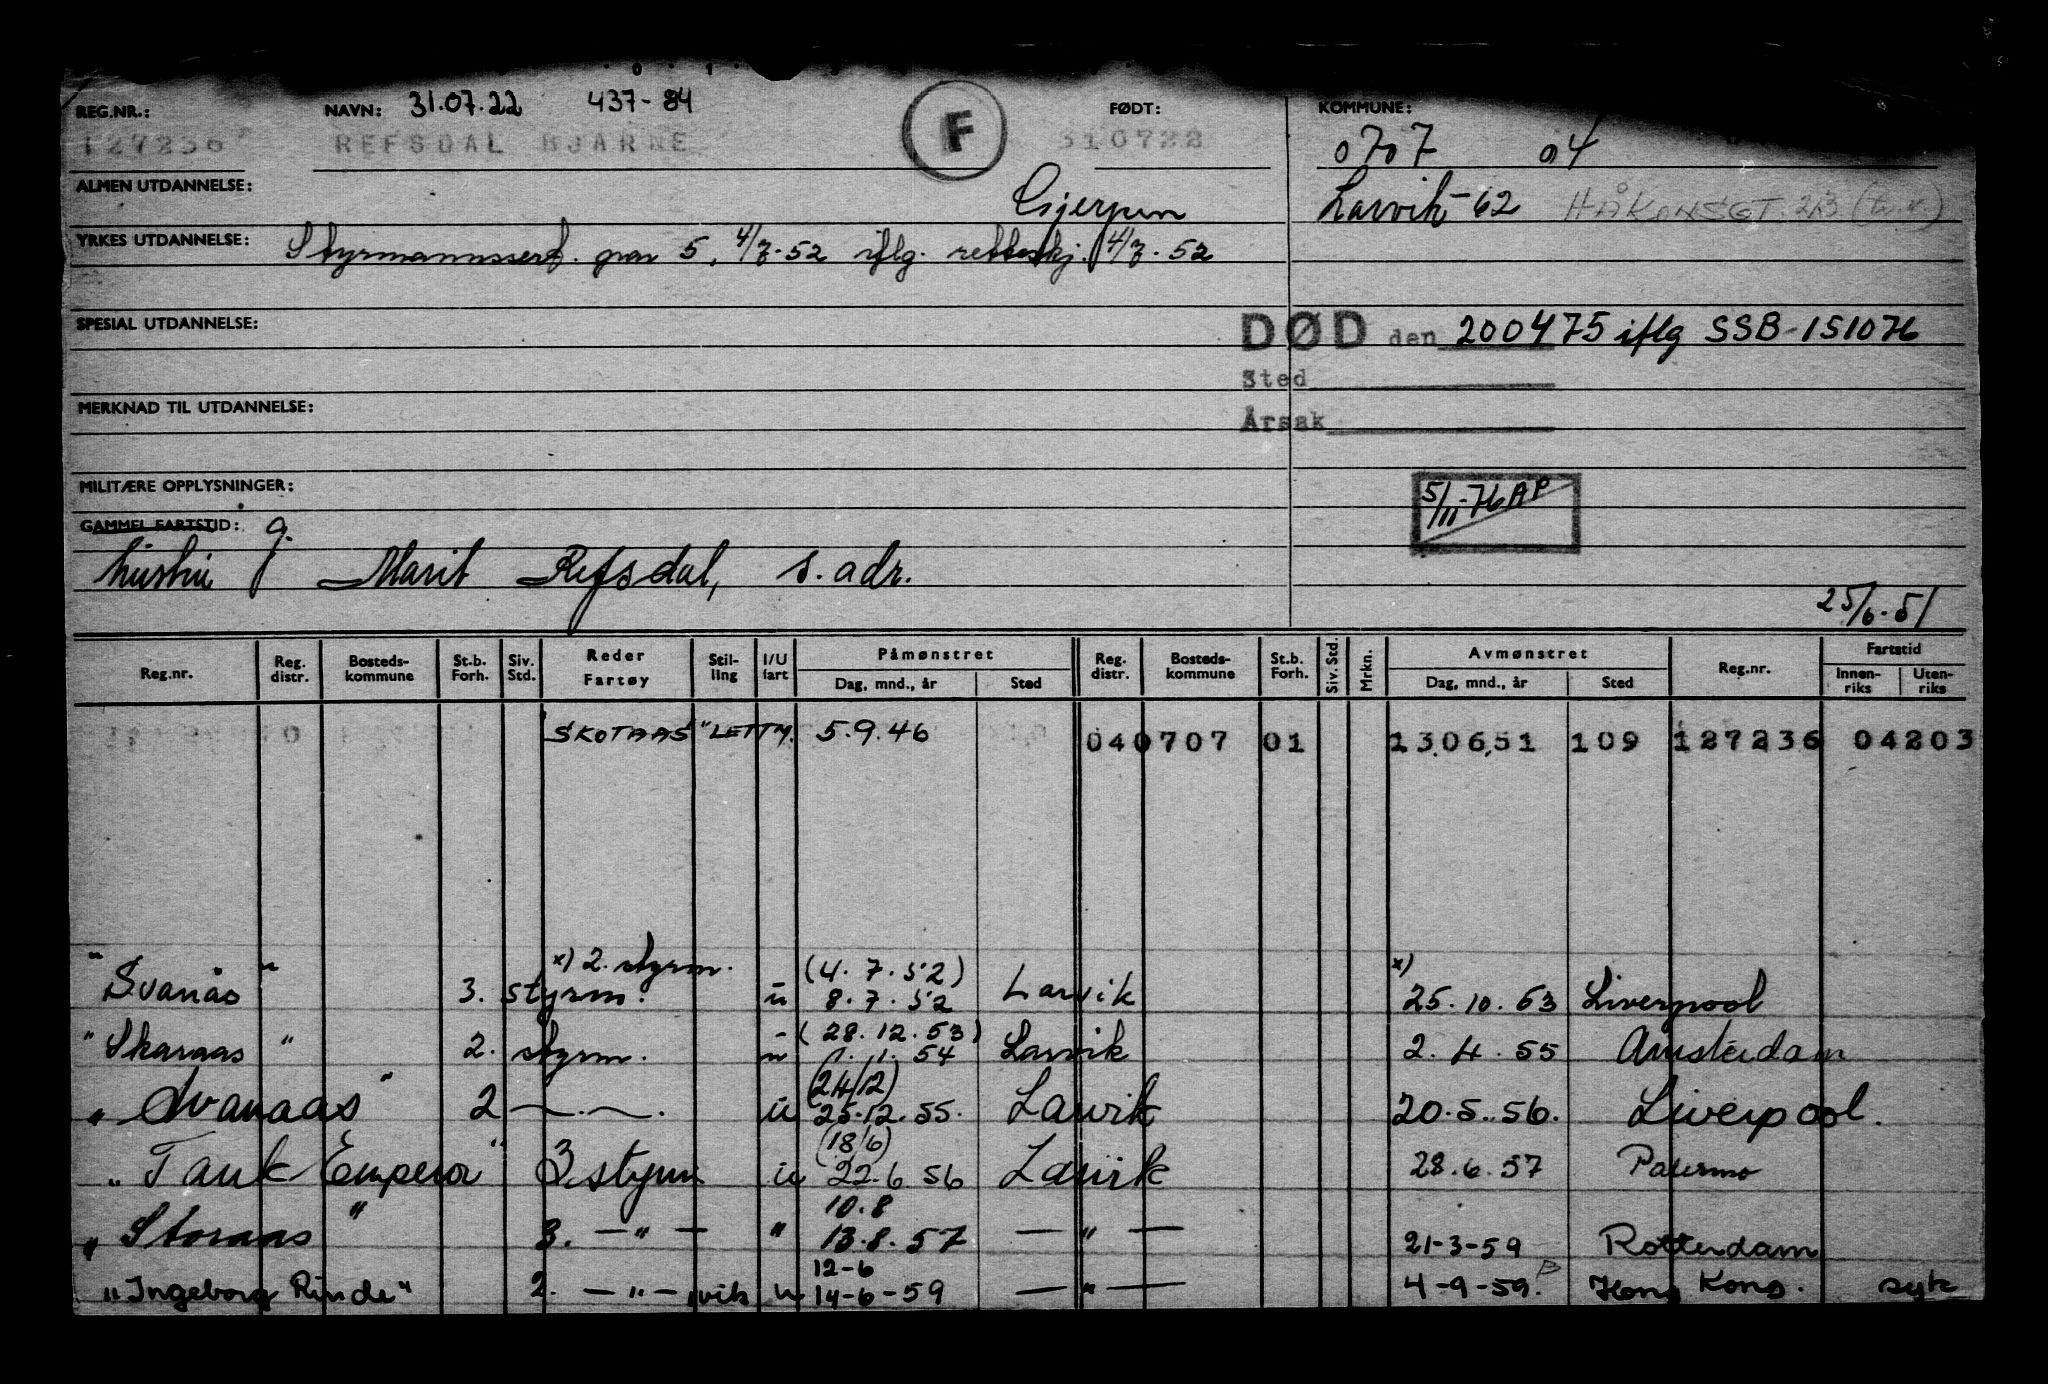 REG.NR.: NAVN: 31.07.22 437-84 F FØDT: KOMMUNE:
127236 REFSDAL BJARNE 310722 0707 04
ALMEN UTDANNELSE: Gjerpen Larvik-62 HÅKONSGT 23
YRKES UTDANNELSE: Styrmannssert. grav 5, 4/7-52 iflg. rettsskj. 4/7-52
SPESIAL UTDANNELSE: DØD den 200475 iflg SSB-151076
Sted
MERKNAD TIL UTDANNELSE: Årsak
MILITÆRE OPPLYSNINGER: 5/11-76 AP
GAMMEL FARTSTID: g.
hustru Marit Refsdal, s. adr.
25/6-51
Reg.nr. Reg. distr. Bosteds-kommune St.b. Forh. Siv. Std. Reder Fartøy Stil-ling I/U fart Påmønstret Dag, mnd., år Sted Reg. distr. Bosteds-kommune St.b. Forh. Siv. Std. Mrkn. Avmønstret Dag, mnd., år Sted Reg.nr. Fartstid Innen-riks Uten-riks
"SKOTAAS" LETTM. 5.9.46 040707 01 130651 109 127236 04203
x) 2. styrm. (4.7.52) x)
"Svanås" 3. styrm. u 8.7.52 Larvik 25.10.53 Liverpool
(28.12.53)
"Skaraas" 2. styrm. u 1.1.54 Larvik 2.4.55 Amsterdam
(24/12)
"Svanaas" 2 —.—. u 25.12.55. Larvik 20.5.56. Liverpool.
(18/6)
"Tank Emperor" 3 styrm u 22.6.56 Larvik 28.6.57 Palermo
10.8
"Storaas" 3. — " — " 13.8.57 — " — 21-3-59 Rotterdam
12-6
"Ingeborg Rinde" 2. — " — vik u 14-6-59 — " — 4-9-59. Hong Kong. syk